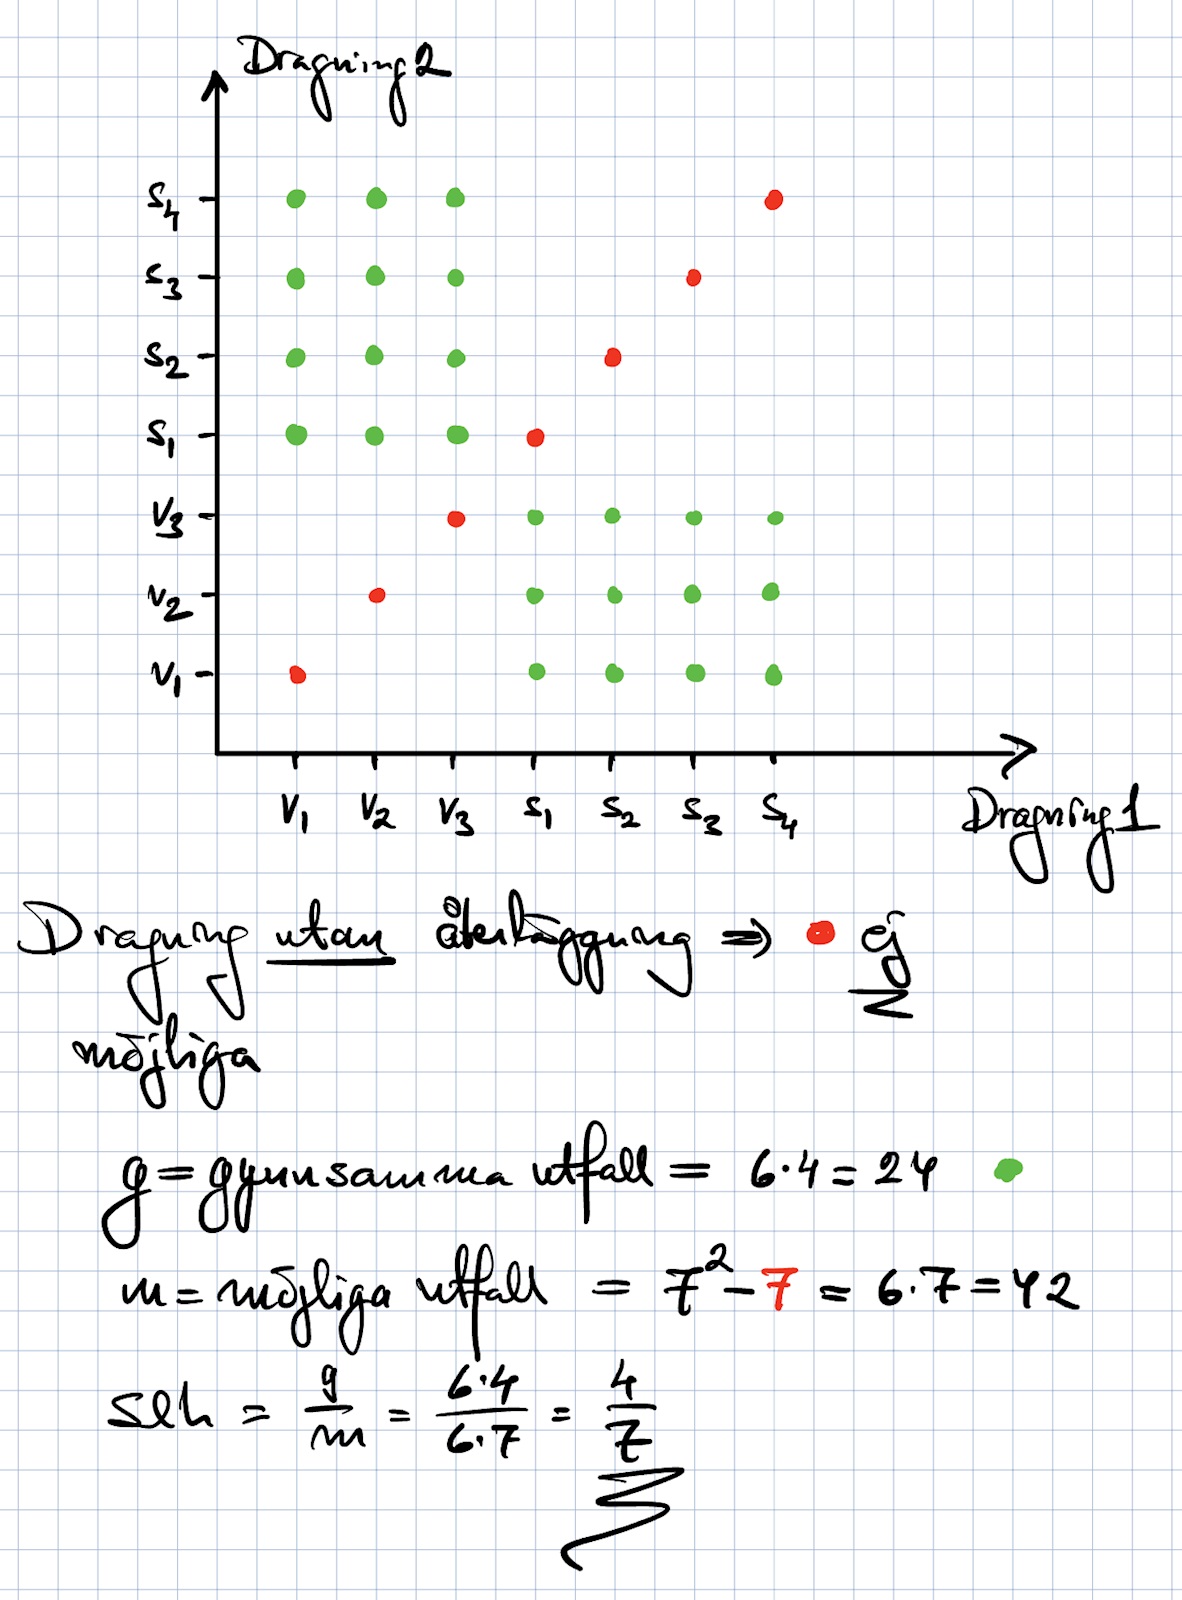 Dragning 2
S4
S3
S2
S1
V3
V2
V1
V1 V2 V3 S1 S2 S3 S4
Dragning 1
Dragning utan återläggning ⇒ ● ej
möjliga
g = gynnsamma utfall = 6·4 = 24 ●
m = möjliga utfall = 7² - 7 = 6·7 = 42
slh = g/m = 6·4/6·7 = 4/7